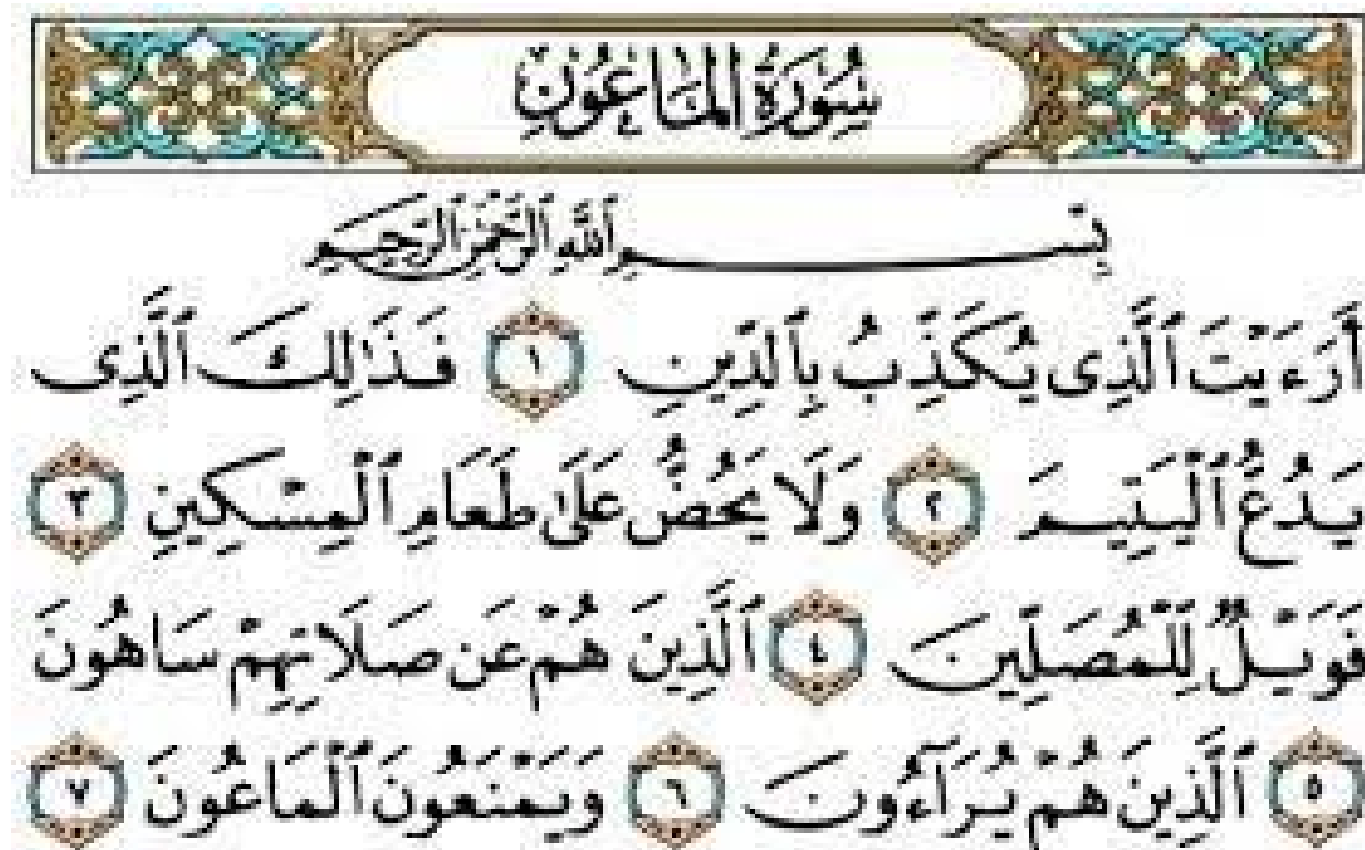 سُورَةُ الْمَاعُونِ
بِسْمِ ٱللَّهِ ٱلرَّحْمَٰنِ ٱلرَّحِيمِ
أَرَءَيْتَ ٱلَّذِى يُكَذِّبُ بِٱلدِّينِ ١ فَذَٰلِكَ ٱلَّذِى
يَدُعُّ ٱلْيَتِيمَ ٢ وَلَا يَحُضُّ عَلَىٰ طَعَامِ ٱلْمِسْكِينِ ٣
فَوَيْلٌ لِّلْمُصَلِّينَ ٤ ٱلَّذِينَ هُمْ عَن صَلَاتِهِمْ سَاهُونَ
٥ ٱلَّذِينَ هُمْ يُرَآءُونَ ٦ وَيَمْنَعُونَ ٱلْمَاعُونَ ٧